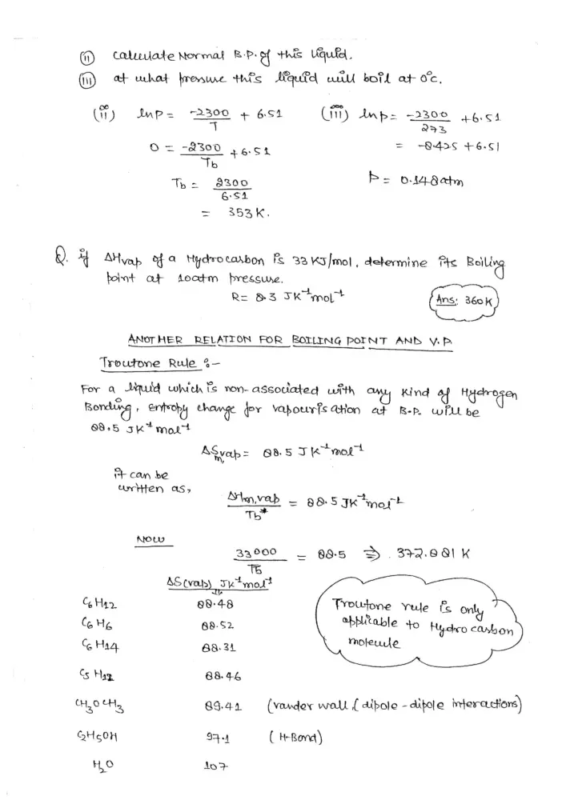 (ii) Calculate Normal B.P. of this liquid.
(iii) at what pressure this liquid will boil at 0°C.
(ii) lnP = -2300/T + 6.51
(iii) lnp = -2300/273 + 6.51
0 = -2300/Tb + 6.51
= -8.425 + 6.51
Tb = 2300/6.51
P = 0.148 atm
= 353 K.
Q. if ΔHvap of a Hydrocarbon is 33 KJ/mol, determine its Boiling
point at 10atm pressure.
R = 8.3 JK⁻¹mol⁻¹
Ans: 360K
ANOTHER RELATION FOR BOILING POINT AND V.P
Troutone Rule :-
For a liquid which is non-associated with any kind of Hydrogen
Bonding, entropy change for vapourisation at B.P. will be
88.5 JK⁻¹mol⁻¹
ΔSm,vap = 88.5 JK⁻¹mol⁻¹
it can be
written as,
ΔHm,vap/Tb* = 88.5 JK⁻¹mol⁻¹
NOW
33000/Tb = 88.5 ⇒ 372.881 K
ΔS(vap) JK⁻¹mol⁻¹
C6H12 88.48
C6H6 88.52
C6H14 88.31
C5H12 88.46
CH3OCH3 89.41 (vander wall & dipole-dipole interactions)
C2H5OH 97.1 (H-Bond)
H2O 107
Troutone rule is only
applicable to Hydrocarbon
molecule